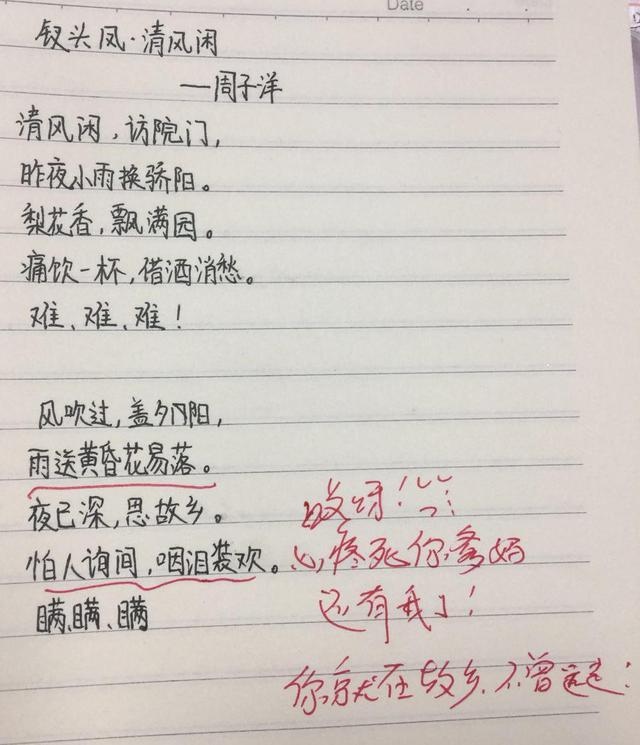 Date
钗头凤·清风闲
—周子洋
清风闲，访院门，
昨夜小雨换骄阳。
梨花香，飘满园。
痛饮一杯，借洒消愁。
难、难、难！
风吹过，盖夕阳，
雨送黄昏花易落。
夜已深，思故乡。
怕人询间，咽泪装欢。
瞒、瞒、瞒
心疼死你爹妈
还有我了！
你就在故乡、不曾远